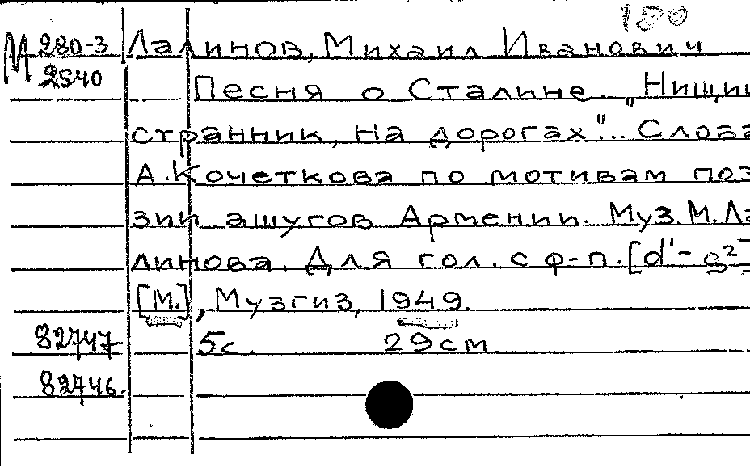 150
М 280-3 Лалинов, Михаил Иванович
2540 Песня о Сталине. „Нищий
странник, на дорогах"... Слова
А. Кочеткова по мотивам поэ
зии ашугов Армении. Муз. М. Ла
линова. Для гол. с ф-п. [d'-g²
[М.], Музгиз, 1949.
82747 5с. 29см
82746.